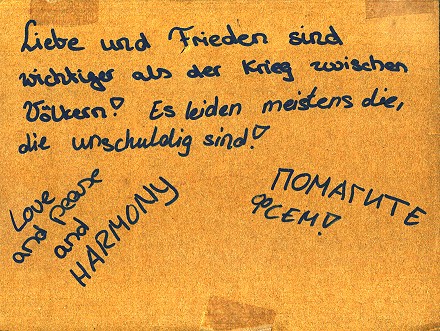 Liebe und Frieden sind
wichtiger als der Krieg zwischen
Völkern! Es leiden meistens die,
die unschuldig sind!
Love
and pease
and
HARMONY
ПОМАГИТЕ
ФСЕМ!